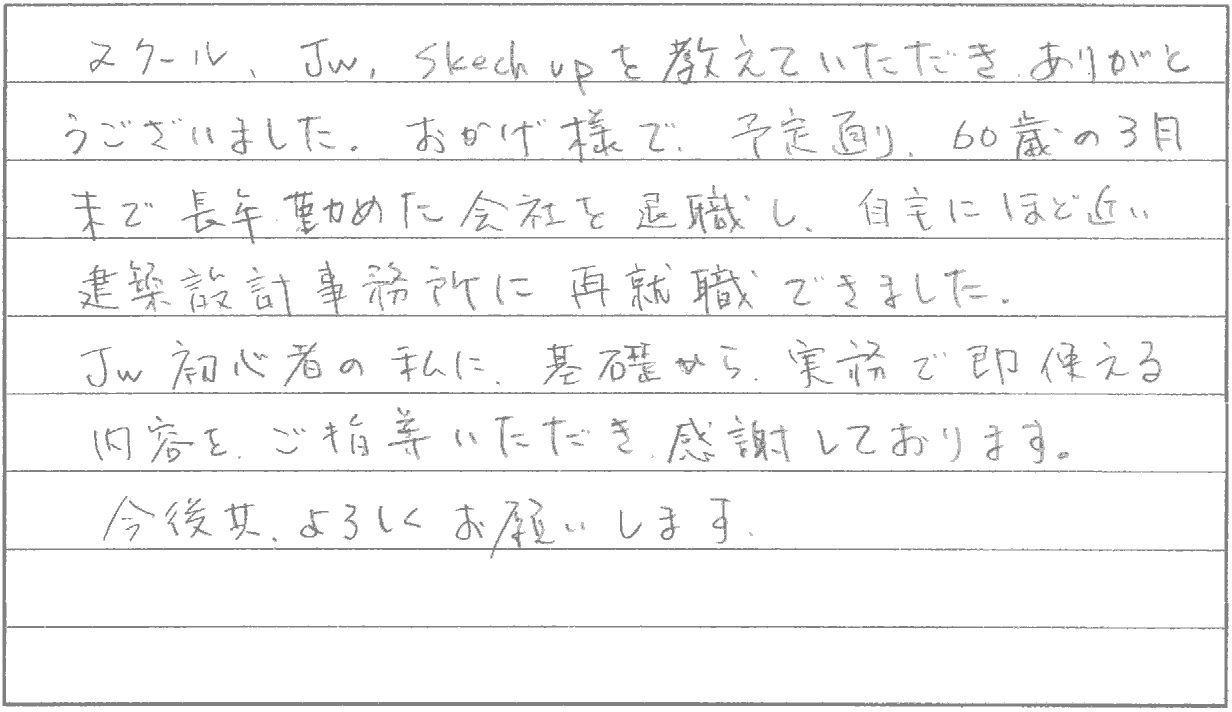 スクール、Jw、Skech upを教えていただき、ありがと
うございました。おかげ様で、予定通り、60歳の3月
末で長年勤めた会社を退職し、自宅にほど近い
建築設計事務所に再就職できました。
Jw初心者の私に、基礎から、実務で即使える
内容を、ご指導いただき、感謝しております。
今後共、よろしくお願いします。